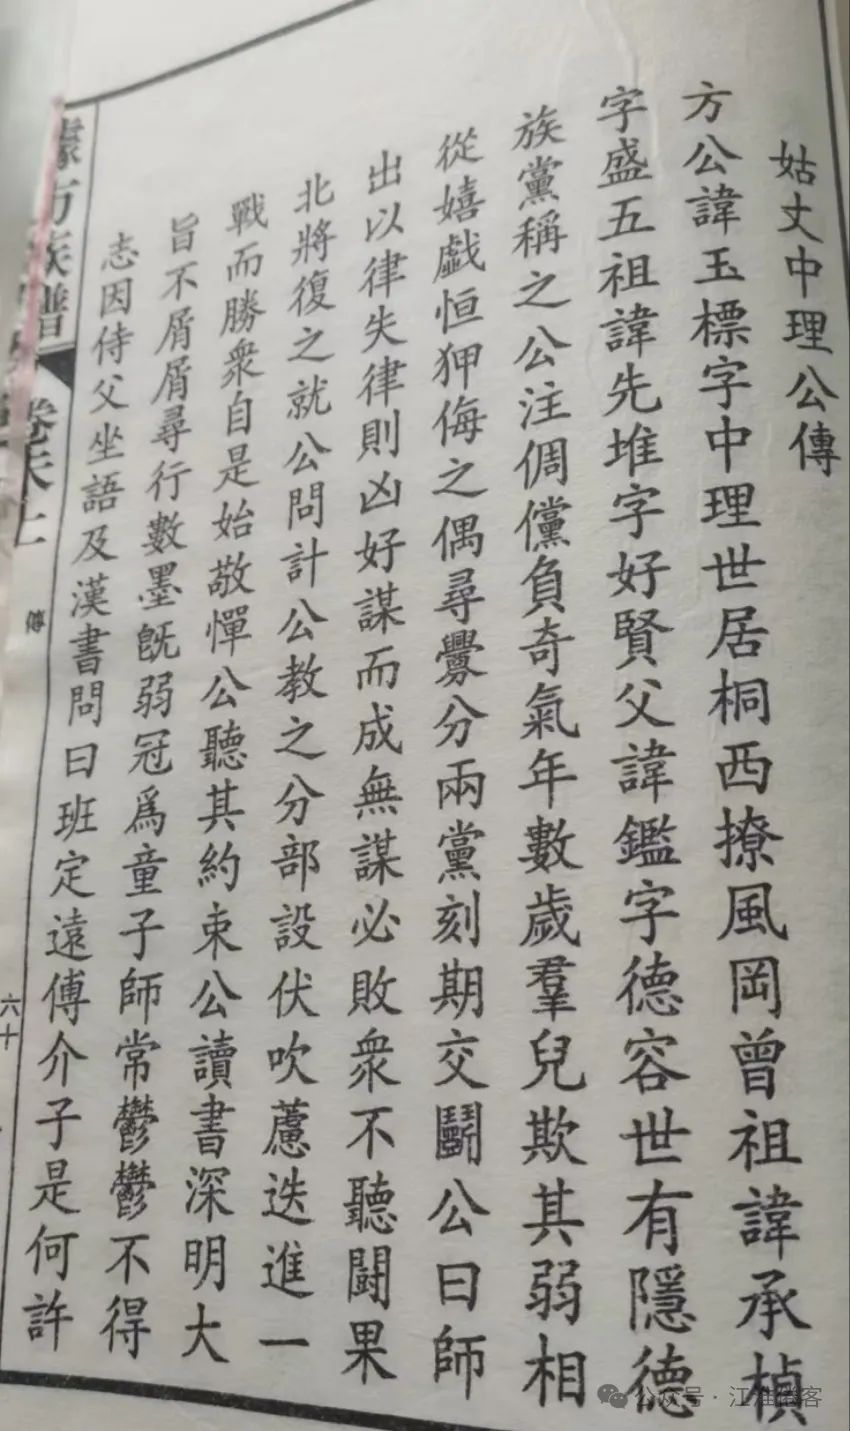 姑丈中理公傳
方公諱玉標字中理世居桐西撩風岡曾祖諱承楨
字盛五祖諱先堆字好賢父諱鑑字德容世有隱德
族黨稱之公注倜儻負奇氣年數歲羣兒欺其弱相
從嬉戯恒狎侮之偶尋釁分兩黨刻期交鬬公曰師
出以律失律則凶好謀而成無謀必敗衆不聽鬪果
北將復之就公問計公教之分部設伏吹蘆迭進一
戰而勝衆自是始敬憚公聽其約束公讀書深明大
旨不屑屑尋行數墨旣弱冠爲童子師常鬱鬱不得
志因侍父坐語及漢書問曰班定遠傅介子是何許
方族譜 卷末上 傳 六十
公众号·江淮